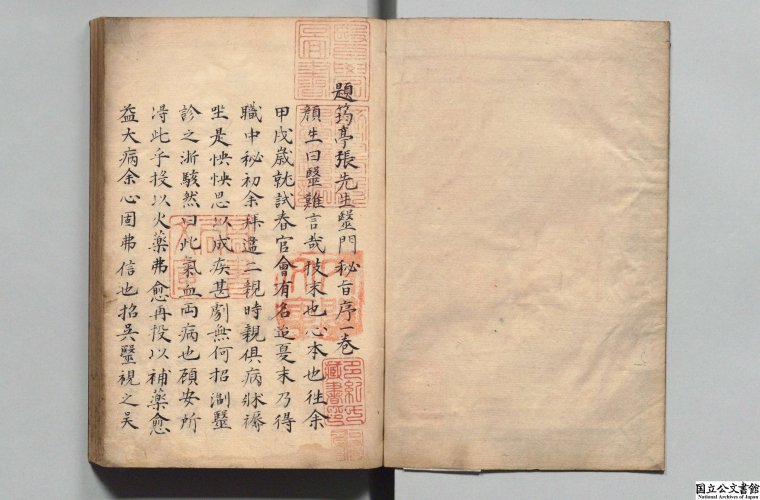 題筠亭張先生醫門秘旨序一卷
顏生曰毉難言哉技末也心本也往余
甲戌歲就試春官會有名迨憂末乃得
職中秘初余拜違二親時親俱病牀褥
坐是怏怏思以成疾甚劇無何招淛毉
診之浙駭然曰此氣血両病也顧安所
淂此乎投以火藥弗愈再投以補藥愈
益大病余心固弗信也招吳毉視之吴
国立公文書館
National Archives of Japan